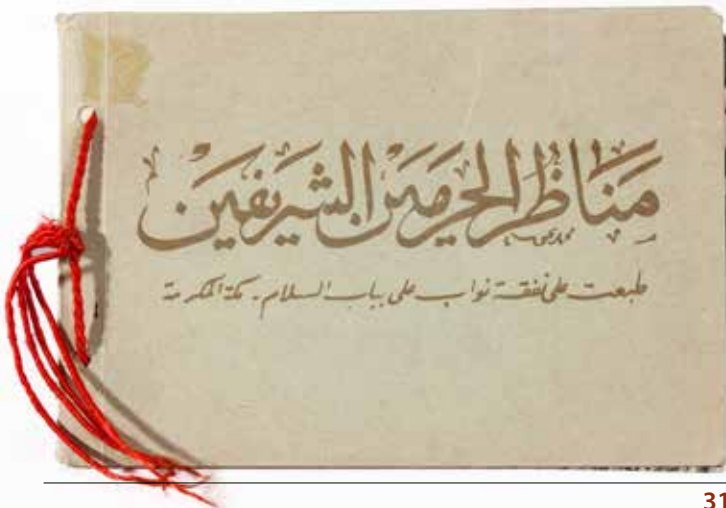 مَنَاظِر الحَرمَين الشَّرِيفَين
طبعت على نفقة نواب على بباب السلام - مكة المكرمة
31